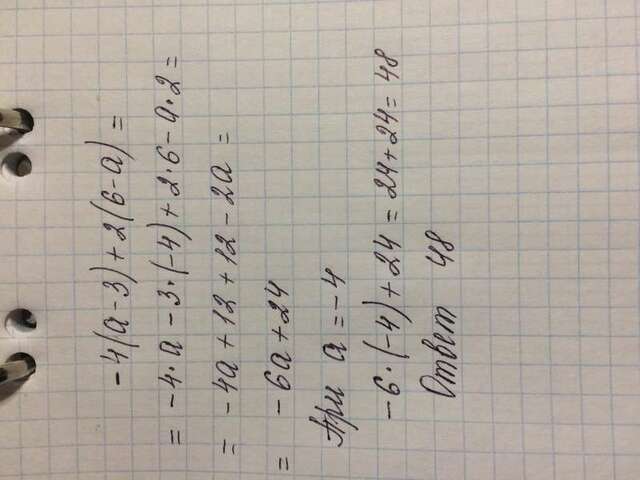 -4(a-3)+2(6-a)=
= -4·a-3·(-4)+2·6-a·2=
= -4a+12+12-2a=
= -6a+24
При a=-4
-6·(-4)+24=24+24=48
Ответ 48